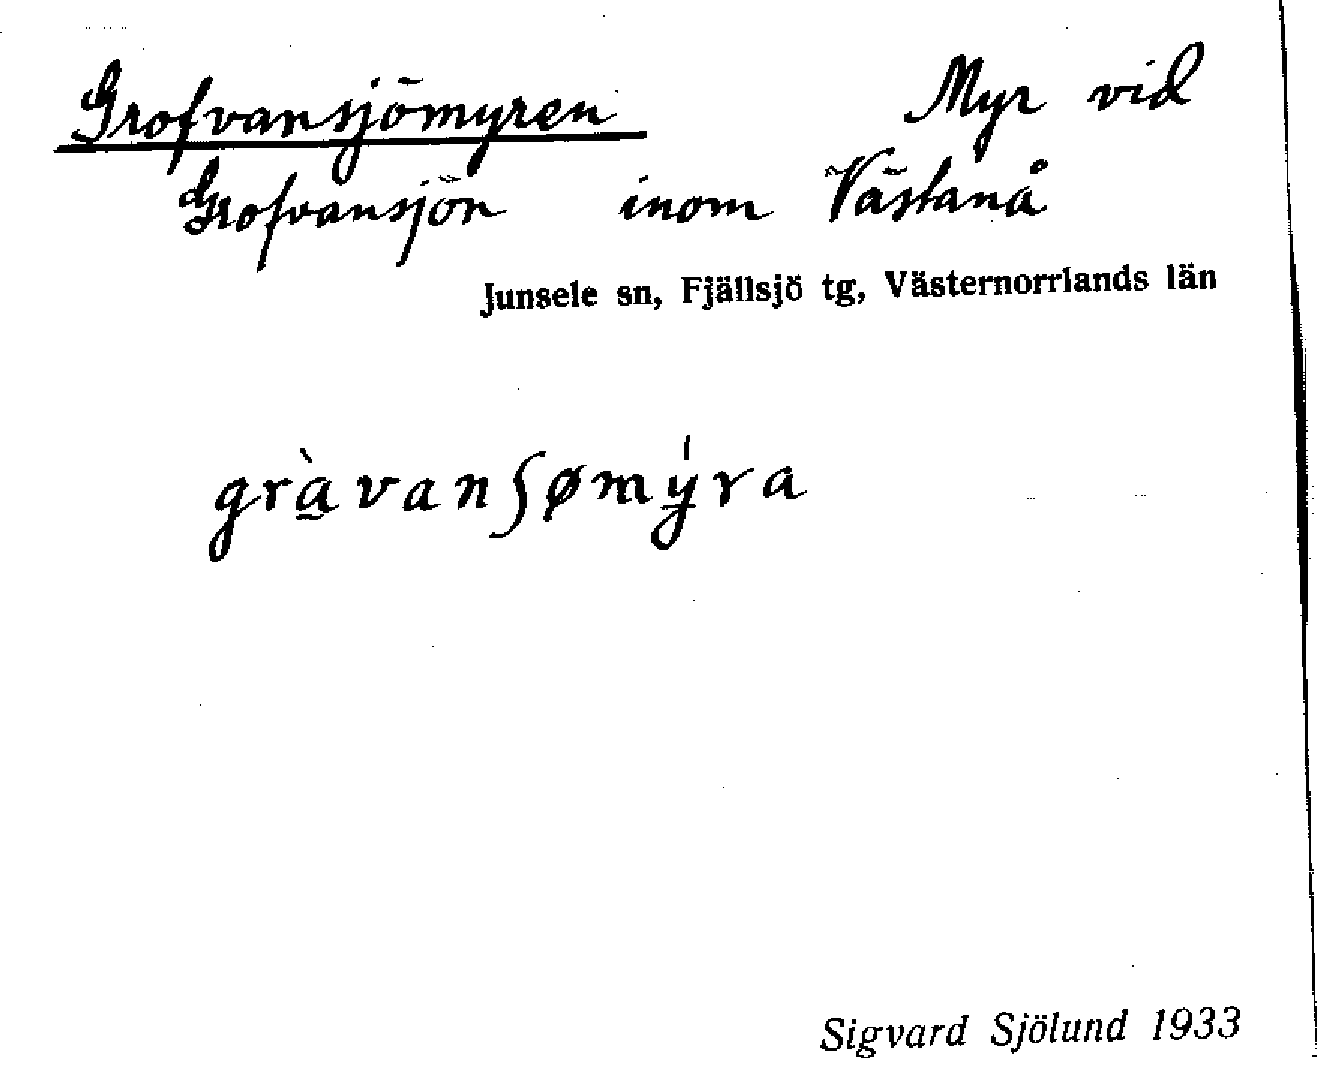 Grofvansjömyren Myr vid
Grofvansjön inom Västanå
Junsele sn, Fjällsjö tg, Västernorrlands län
grà̱vanʃømý̱ra
Sigvard Sjölund 1933